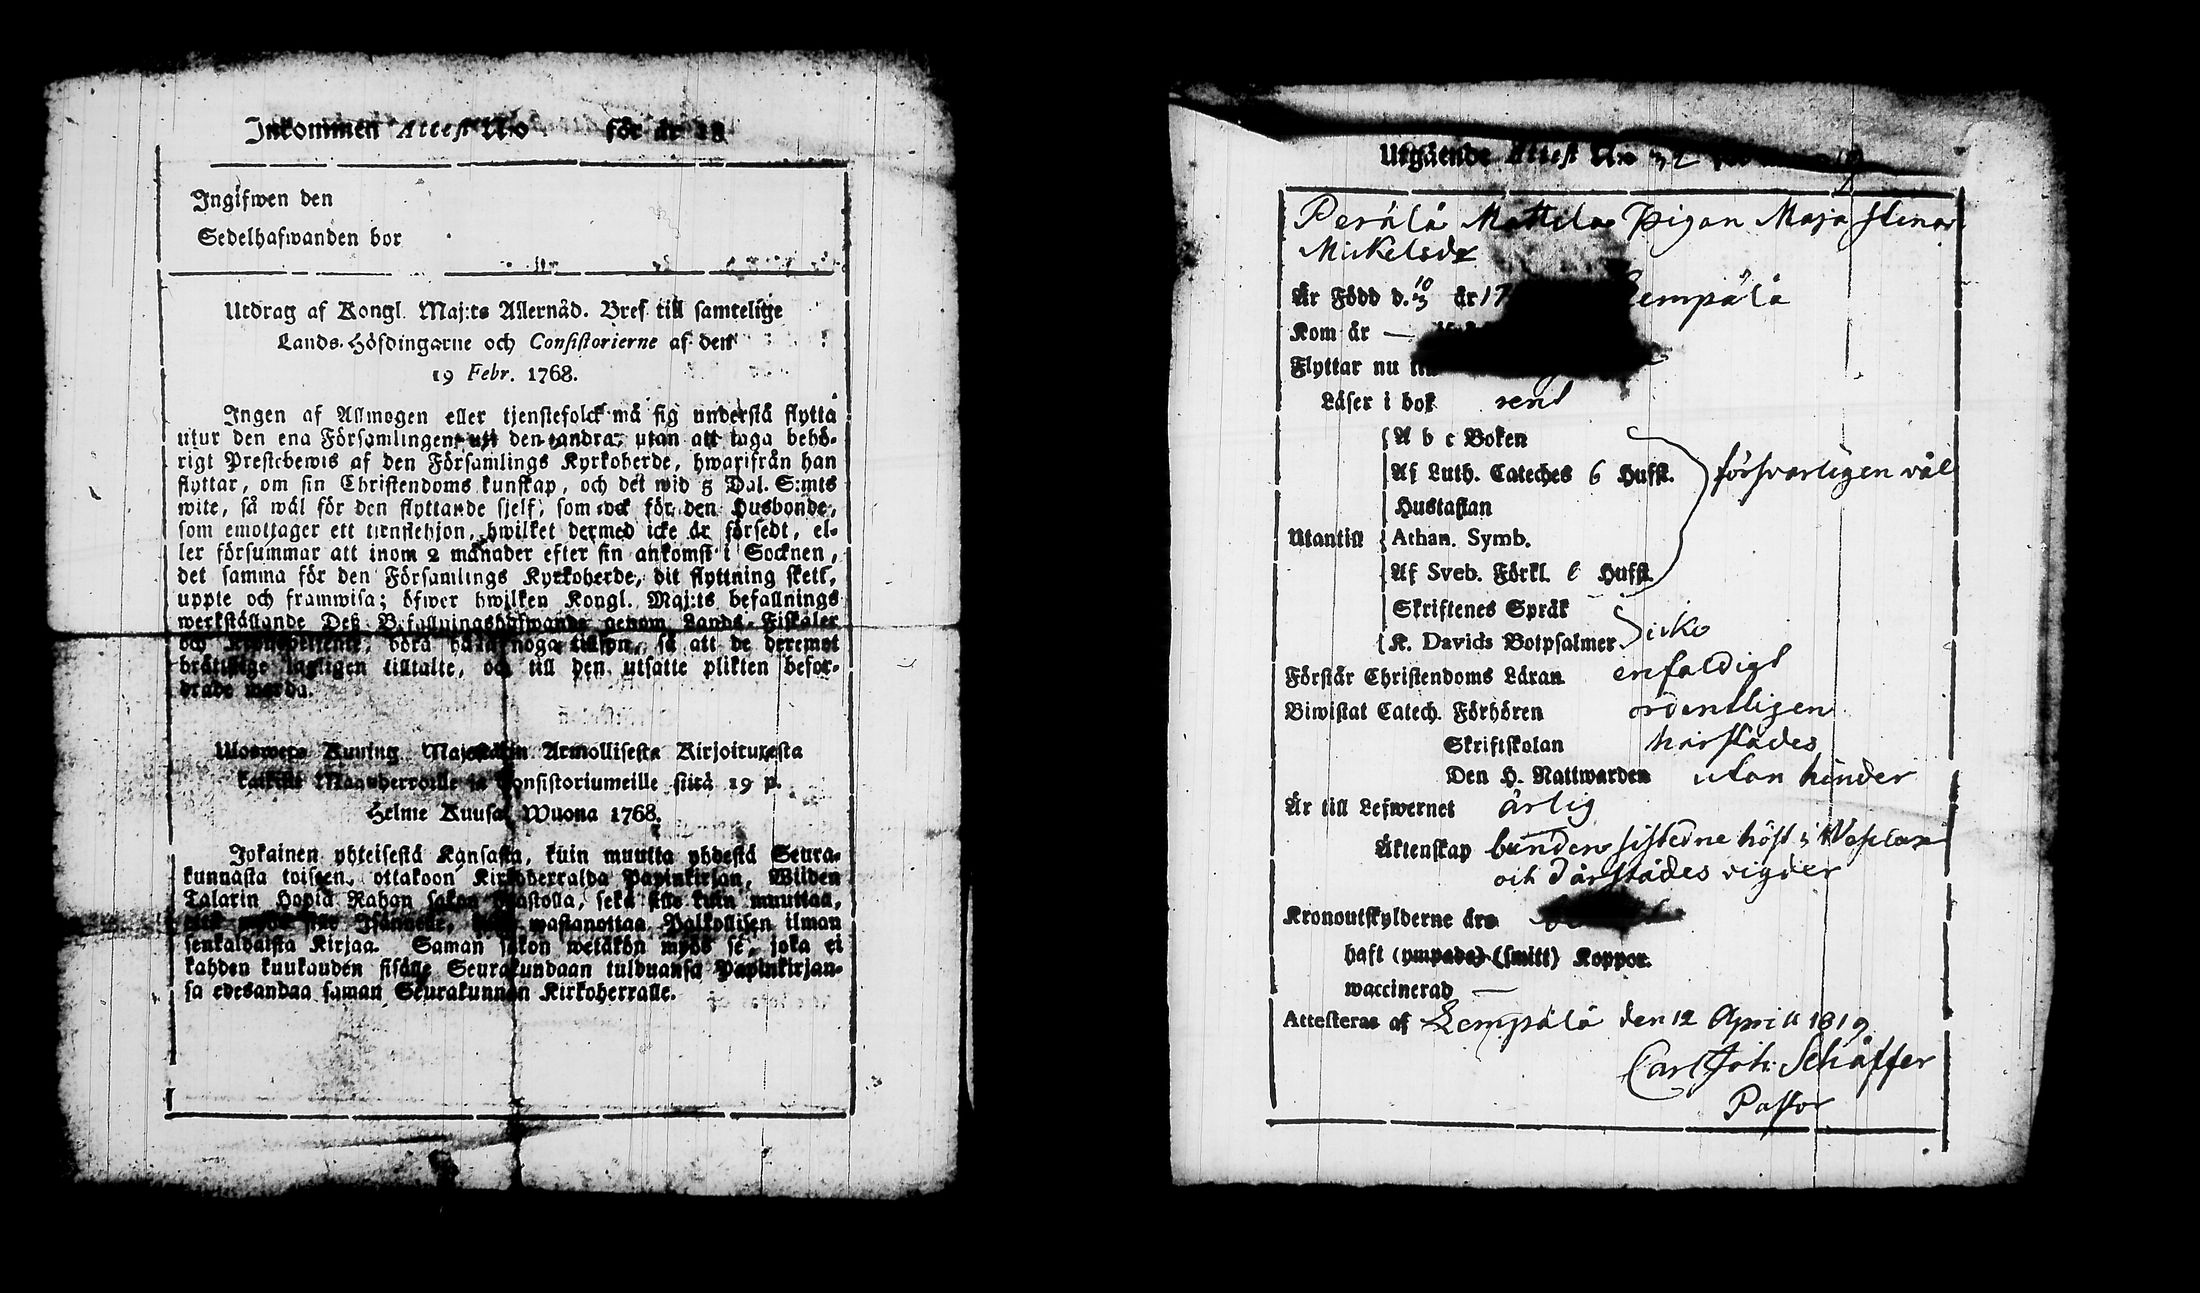 Inkommen Attest N:o för år 18
Ingifwen den
Sedelhafwanden bor
Utdrag af Kongl. Maj:ts Allernåd. Bref till samtelige
Lands-Höfdingarne och Consistorierne af den
19 Febr. 1768.
Ingen af Allmogen eller tjenstefolck må sig understå flytta
utur den ena Församlingen utl den andra, utan att taga behö-
rigt Prestebewis af den Församlings Kyrkoherde, hwarifrån han
flyttar, om sin Christendoms kunskap, och det wid 5 Dal. S:mts
wite, så wäl för den flyttande sjelf, som ock för den Husbonde,
som emottager ett tienstehjon, hwilket dermed icke är försedt, el-
ler försummar att inom 2 månader efter sin ankomst i Socknen,
det samma för den Församlings Kyrkoherde, dit flyttning skett,
uppte och framwisa; öfwer hwilken Kongl. Maj:ts befallnings
werkställande Deß Befallningshafwande genom Lands-Fiskaler
och böra hafwa noga tillsyn, så att de deremot
brättslige lagligen tilltalte, och till den utsatte plikten befor-
drade warda.
Uloswetty Kuning. Majestetin Armollisesta Kirjoituxesta
kaikille Maanherroille ja Consistoriumeille siitä 19 p.
Helme Kuusa, Wuona 1768.
Jokainen yhteisestä Kansasta, kuin muutta yhdestä Seura-
kunnasta toiseen, ottakoon Kirkoherralda Papinkirjan, Wiiden
Talarin Hopia Rahan sakon haastolla, sekä sille kuin muuttaa,
Isännelle, wastanottaa Palkollisen ilman
senkaldaista Kirjaa. Saman sakon wetäkön myös se, joka ei
kahden kuukauden sisälle Seurakundaan tulduansa Papinkirjan-
sa edesandaa saman Seurakunnan Kirkoherralle.
Utgående Attest N:o 32
Perälä Mattila Pigan Maja Stina
Mickelsdr
Är Född d. 10/3 år 17 Lempälä
Kom år —
Flyttar nu
Läser i bok rent
A b c Boken
Af Luth. Cateches 6 Hufst. försvarligen väl
Hustaflan
Utantill Athan. Symb.
Af Sveb. Förkl. 6 Hufst.
Skriftenes Språk
K. Davids Botpsalmer icke
Förstår Christendoms Läran enfaldigt
Biwistat Catech. Förhören ordentligen
Skriftskolan härstädes
Den H. Nattwarden utan hinder
Är till Lefwernet ärlig
Äktenskap bunden sistledne höst i Wesilax
och därstädes vigder
Kronoutskylderne äro
haft (ympade) (smitt) Koppor.
waccinerad —
Attesteras af Lempälä den 12 Aprill 1819
Carl Joh: Schäffer
Pastor